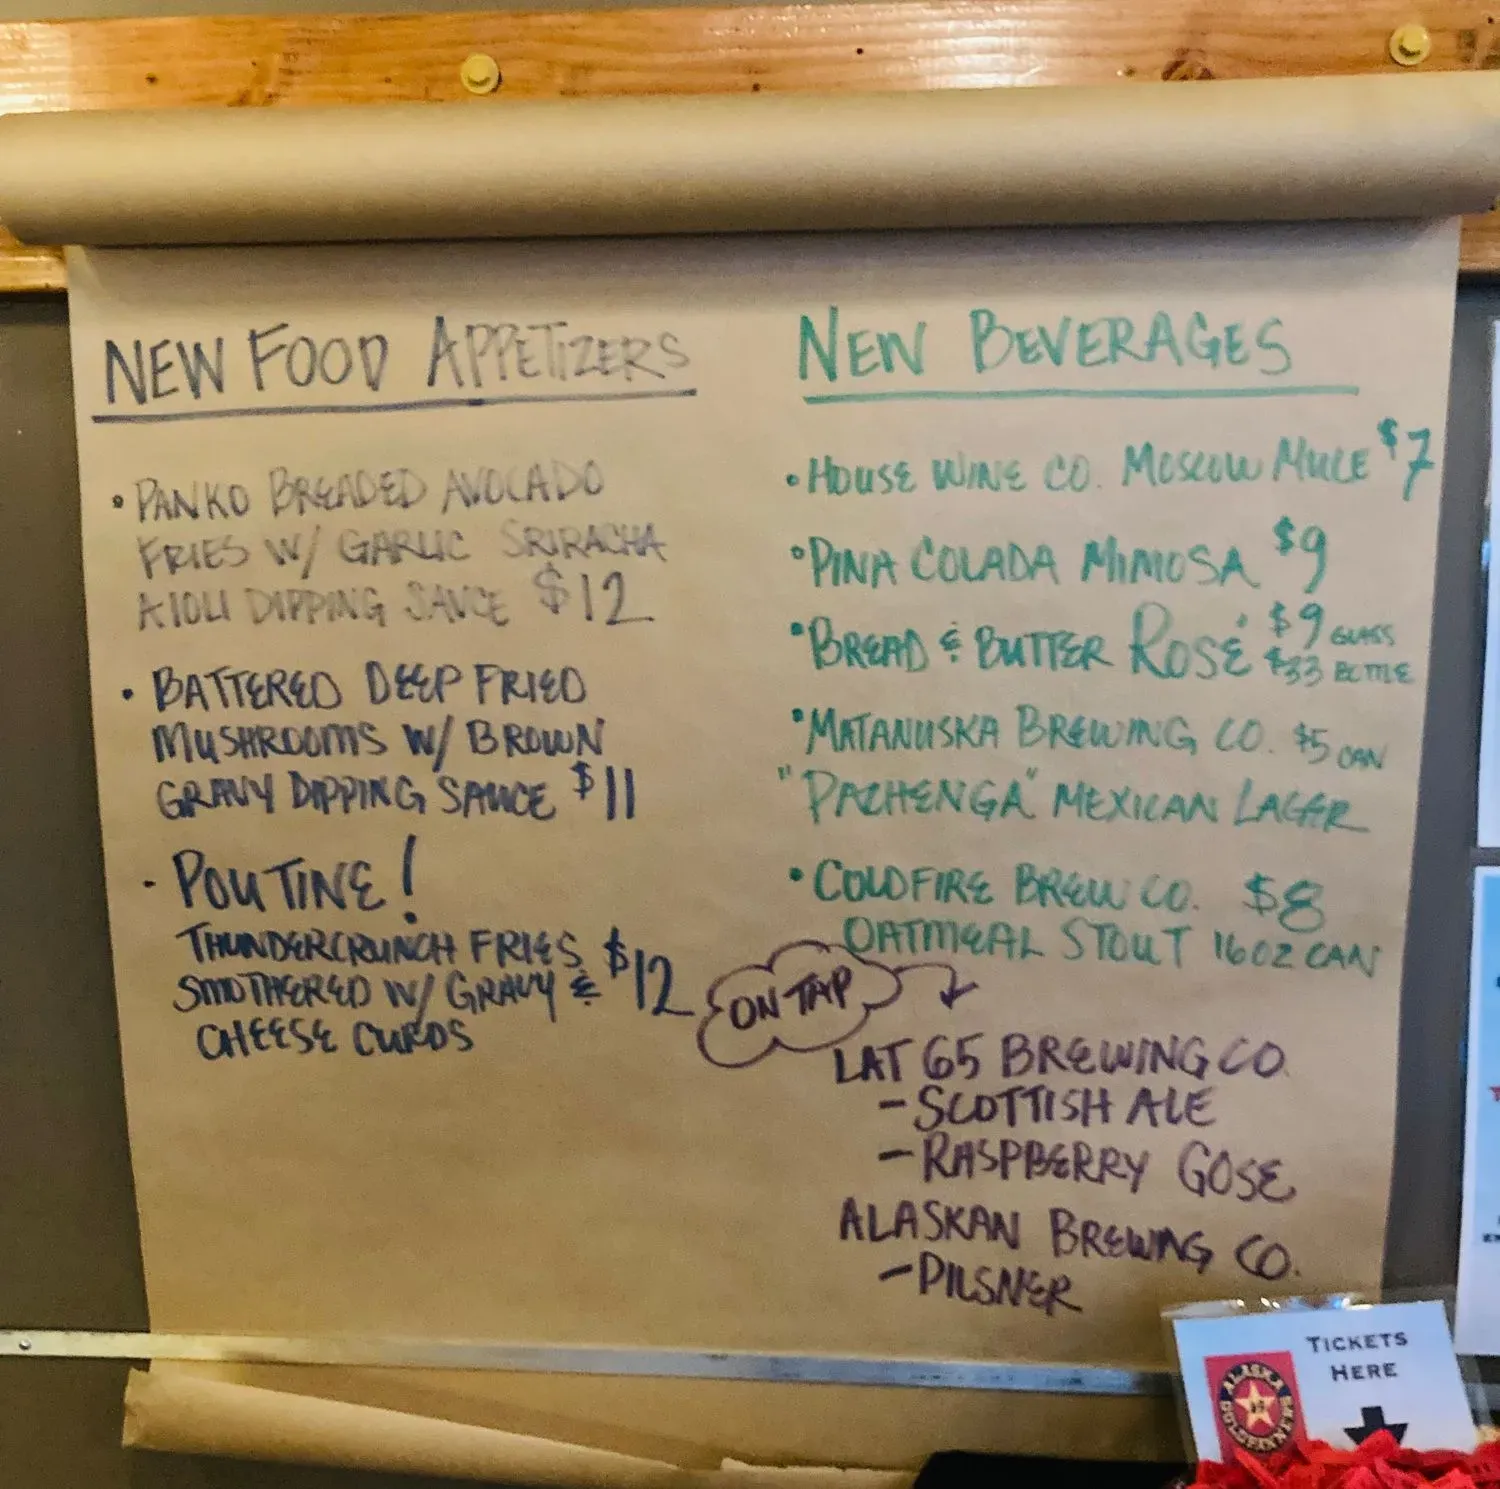 NEW FOOD APPETIZERS
• PANKO BREADED AVOCADO
FRIES W/ GARLIC SRIRACHA
AIOLI DIPPING SAUCE $12
• BATTERED DEEP FRIED
MUSHROOMS W/ BROWN
GRAVY DIPPING SAUCE $11
- POUTINE!
THUNDERCRUNCH FRIES $12
SMOTHERED W/ GRAVY &
CHEESE CURDS
NEW BEVERAGES
• HOUSE WINE CO. MOSCOW MULE $7
• PINA COLADA MIMOSA $9
• BREAD & BUTTER ROSÉ $9 GLASS
$33 BOTTLE
• MATANUSKA BREWING CO. $5 CAN
"PACHENGA" MEXICAN LAGER
• COLDFIRE BREW CO. $8
OATMEAL STOUT 16OZ CAN
ON TAP
LAT 65 BREWING CO.
- SCOTTISH ALE
- RASPBERRY GOSE
ALASKAN BREWING CO.
- PILSNER
TICKETS
HERE
ALASKA